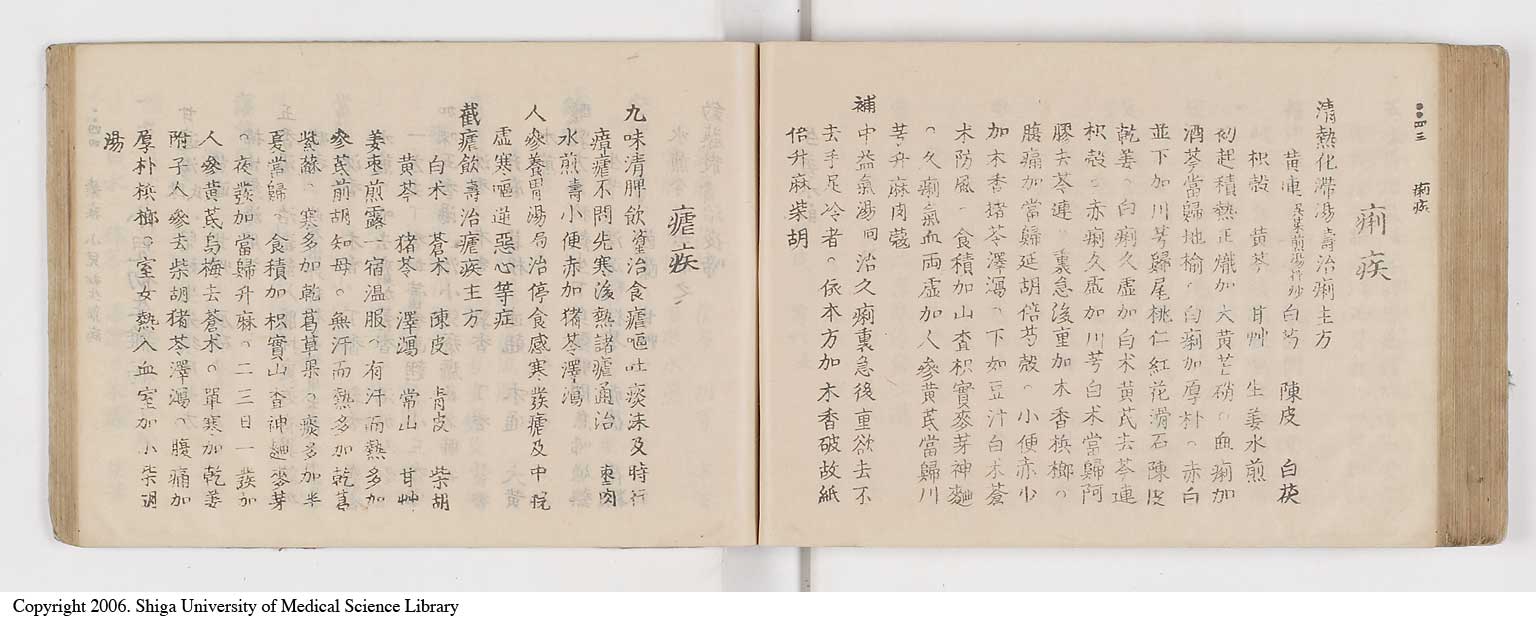 痢疾
痢疾
清熱化滯湯壽治痢主方
黄連 白芍 陳皮 白茯
枳殻 黄芩 甘艸 生姜水煎
初起積熱正熾加大黄芒硝。血痢加
酒芩當歸地榆。白痢加厚朴。赤白
並下加川芎歸尾桃仁紅花滑石陳皮
乾姜。白痢久虚加白术黄芪去芩連
枳殻。赤痢久虚加川芎白术當歸阿
膠去芩連。裏急後重加木香梹榔。
腹痛加當歸延胡倍芍殻。小便赤少
加木香猪苓澤瀉。下如豆汁白术蒼
术防風。食積加山査枳實麥芽神麯
。久痢氣血両虚加人參黄芪當歸川
芎升麻肉蔻
補中益氣湯同治久痢裏急後重欲去不
去手足冷者。依本方加木香破故紙
倍升麻柴胡
瘧疾
九味清脾飲 治食瘧嘔吐痰涎及時行
瘴瘧不問先寒後熱諸瘧通治 棗肉
水煎壽小便赤加猪苓澤瀉
人參養胃湯局治停食感寒發瘧及中脘
虚寒嘔逆惡心等症
截瘧飲壽治瘧疾主方
白术 蒼术 陳皮 青皮 柴胡
黄芩 猪苓 澤瀉 常山 甘艸
姜棗煎露一宿温服。有汗而熱多加
參芪前胡知母。無汗而熱多加乾葛
紫蘇。寒多加乾葛草果。痰多加半
夏當歸。食積加枳實山査神麯麥芽
。夜發加當歸升麻。二三日一發加
人參黄芪烏梅去蒼术。單寒加乾姜
附子人參去柴胡猪苓澤瀉。腹痛加
厚朴梹榔。室女熱入血室加小柴胡
湯
Copyright 2006. Shiga University of Medical Science Library